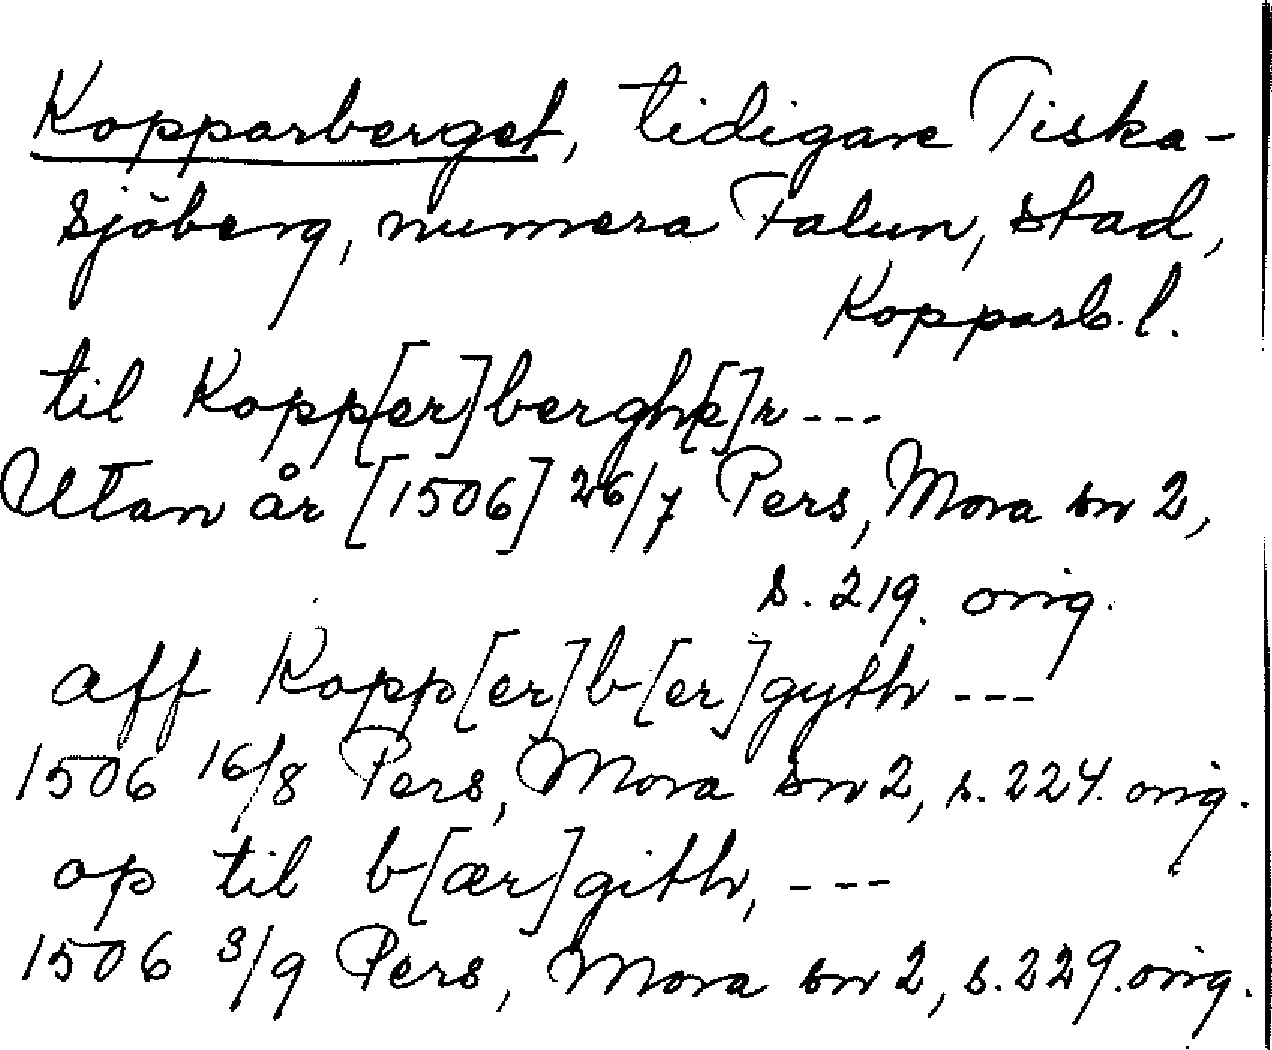 Kopparberget, tidigare Tiska-
sjöberg, numera Falun, stad,
Kopparb. l.
til Kopp[er]bergh[e]r ---
Utan år [1506] 26/7 Pers, Mora sn 2,
s. 219. orig.
aff Kopp[er]b[er]gyth ---
1506 16/8 Pers, Mora sn 2, s. 224. orig.
op til b[ær]gith, ---
1506 3/9 Pers, Mora sn 2, s. 229. orig.